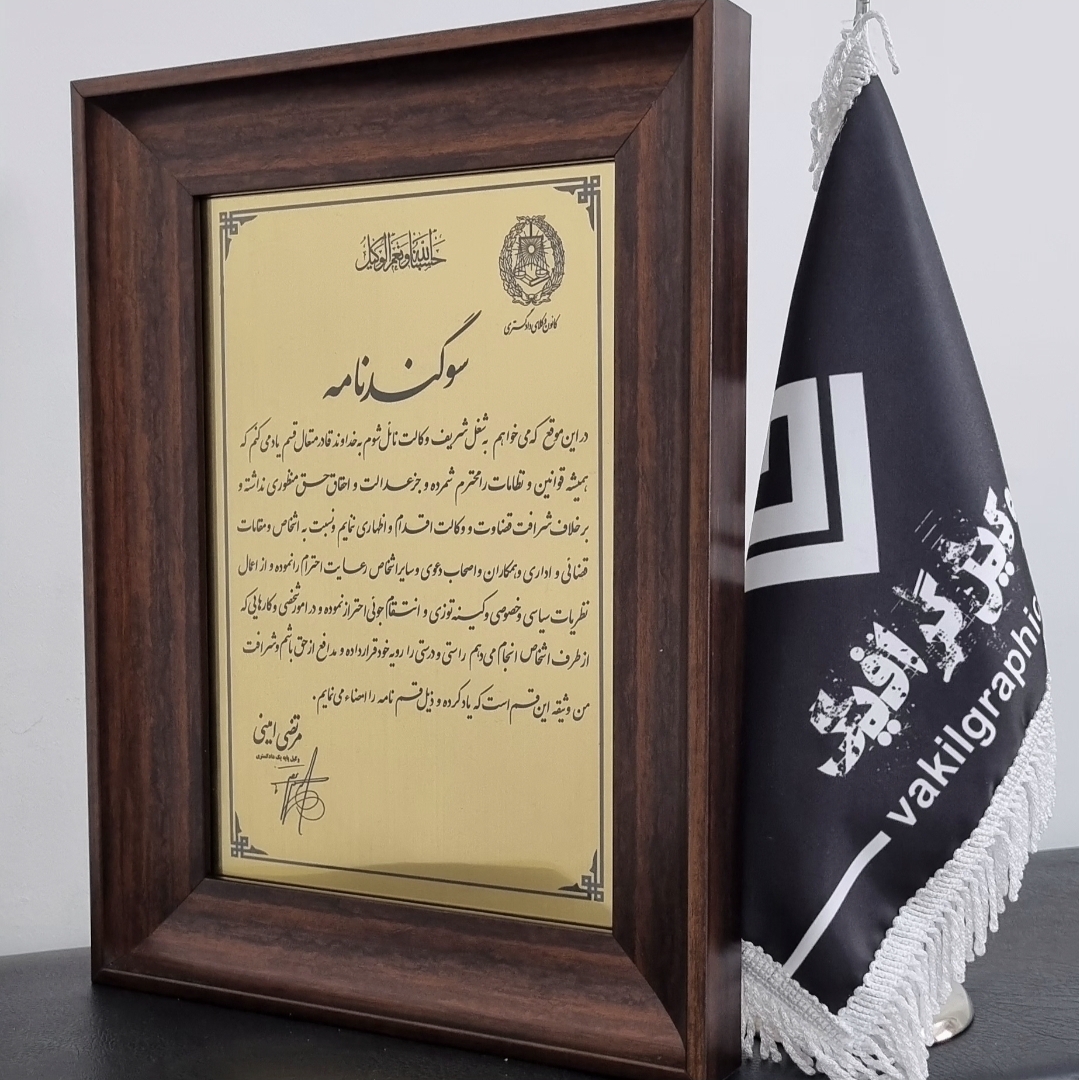 حسبنا الله و نعم الوکیل
کانون وکلای دادگستری
سوگندنامه
در این موقع که می خواهم به شغل شریف وکالت نائل شوم به خداوند قادر متعال قسم یاد می کنم که
همیشه قوانین و نظامات را محترم شمرده و جز عدالت و احقاق حق منظوری نداشته و
برخلاف شرافت قضاوت و وکالت اقدام و اظهاری ننمایم و نسبت به اشخاص و مقامات
قضائی و اداری و همکاران و اصحاب دعوی و سایر اشخاص رعایت احترام را نموده و از اعمال
نظریات سیاسی و خصوصی و کینه توزی و انتقام جوئی احتراز نموده و در امور شخصی و کارهایی که
از طرف اشخاص انجام می دهم راستی و درستی را رویه خود قرار داده و مدافع از حق باشم و شرافت
من وثیقه این قسم است که یاد کرده و ذیل قسم نامه را امضاء می نمایم.
مرتضی امینی
وکیل پایه یک دادگستری
گرافیک
vakilgraphic